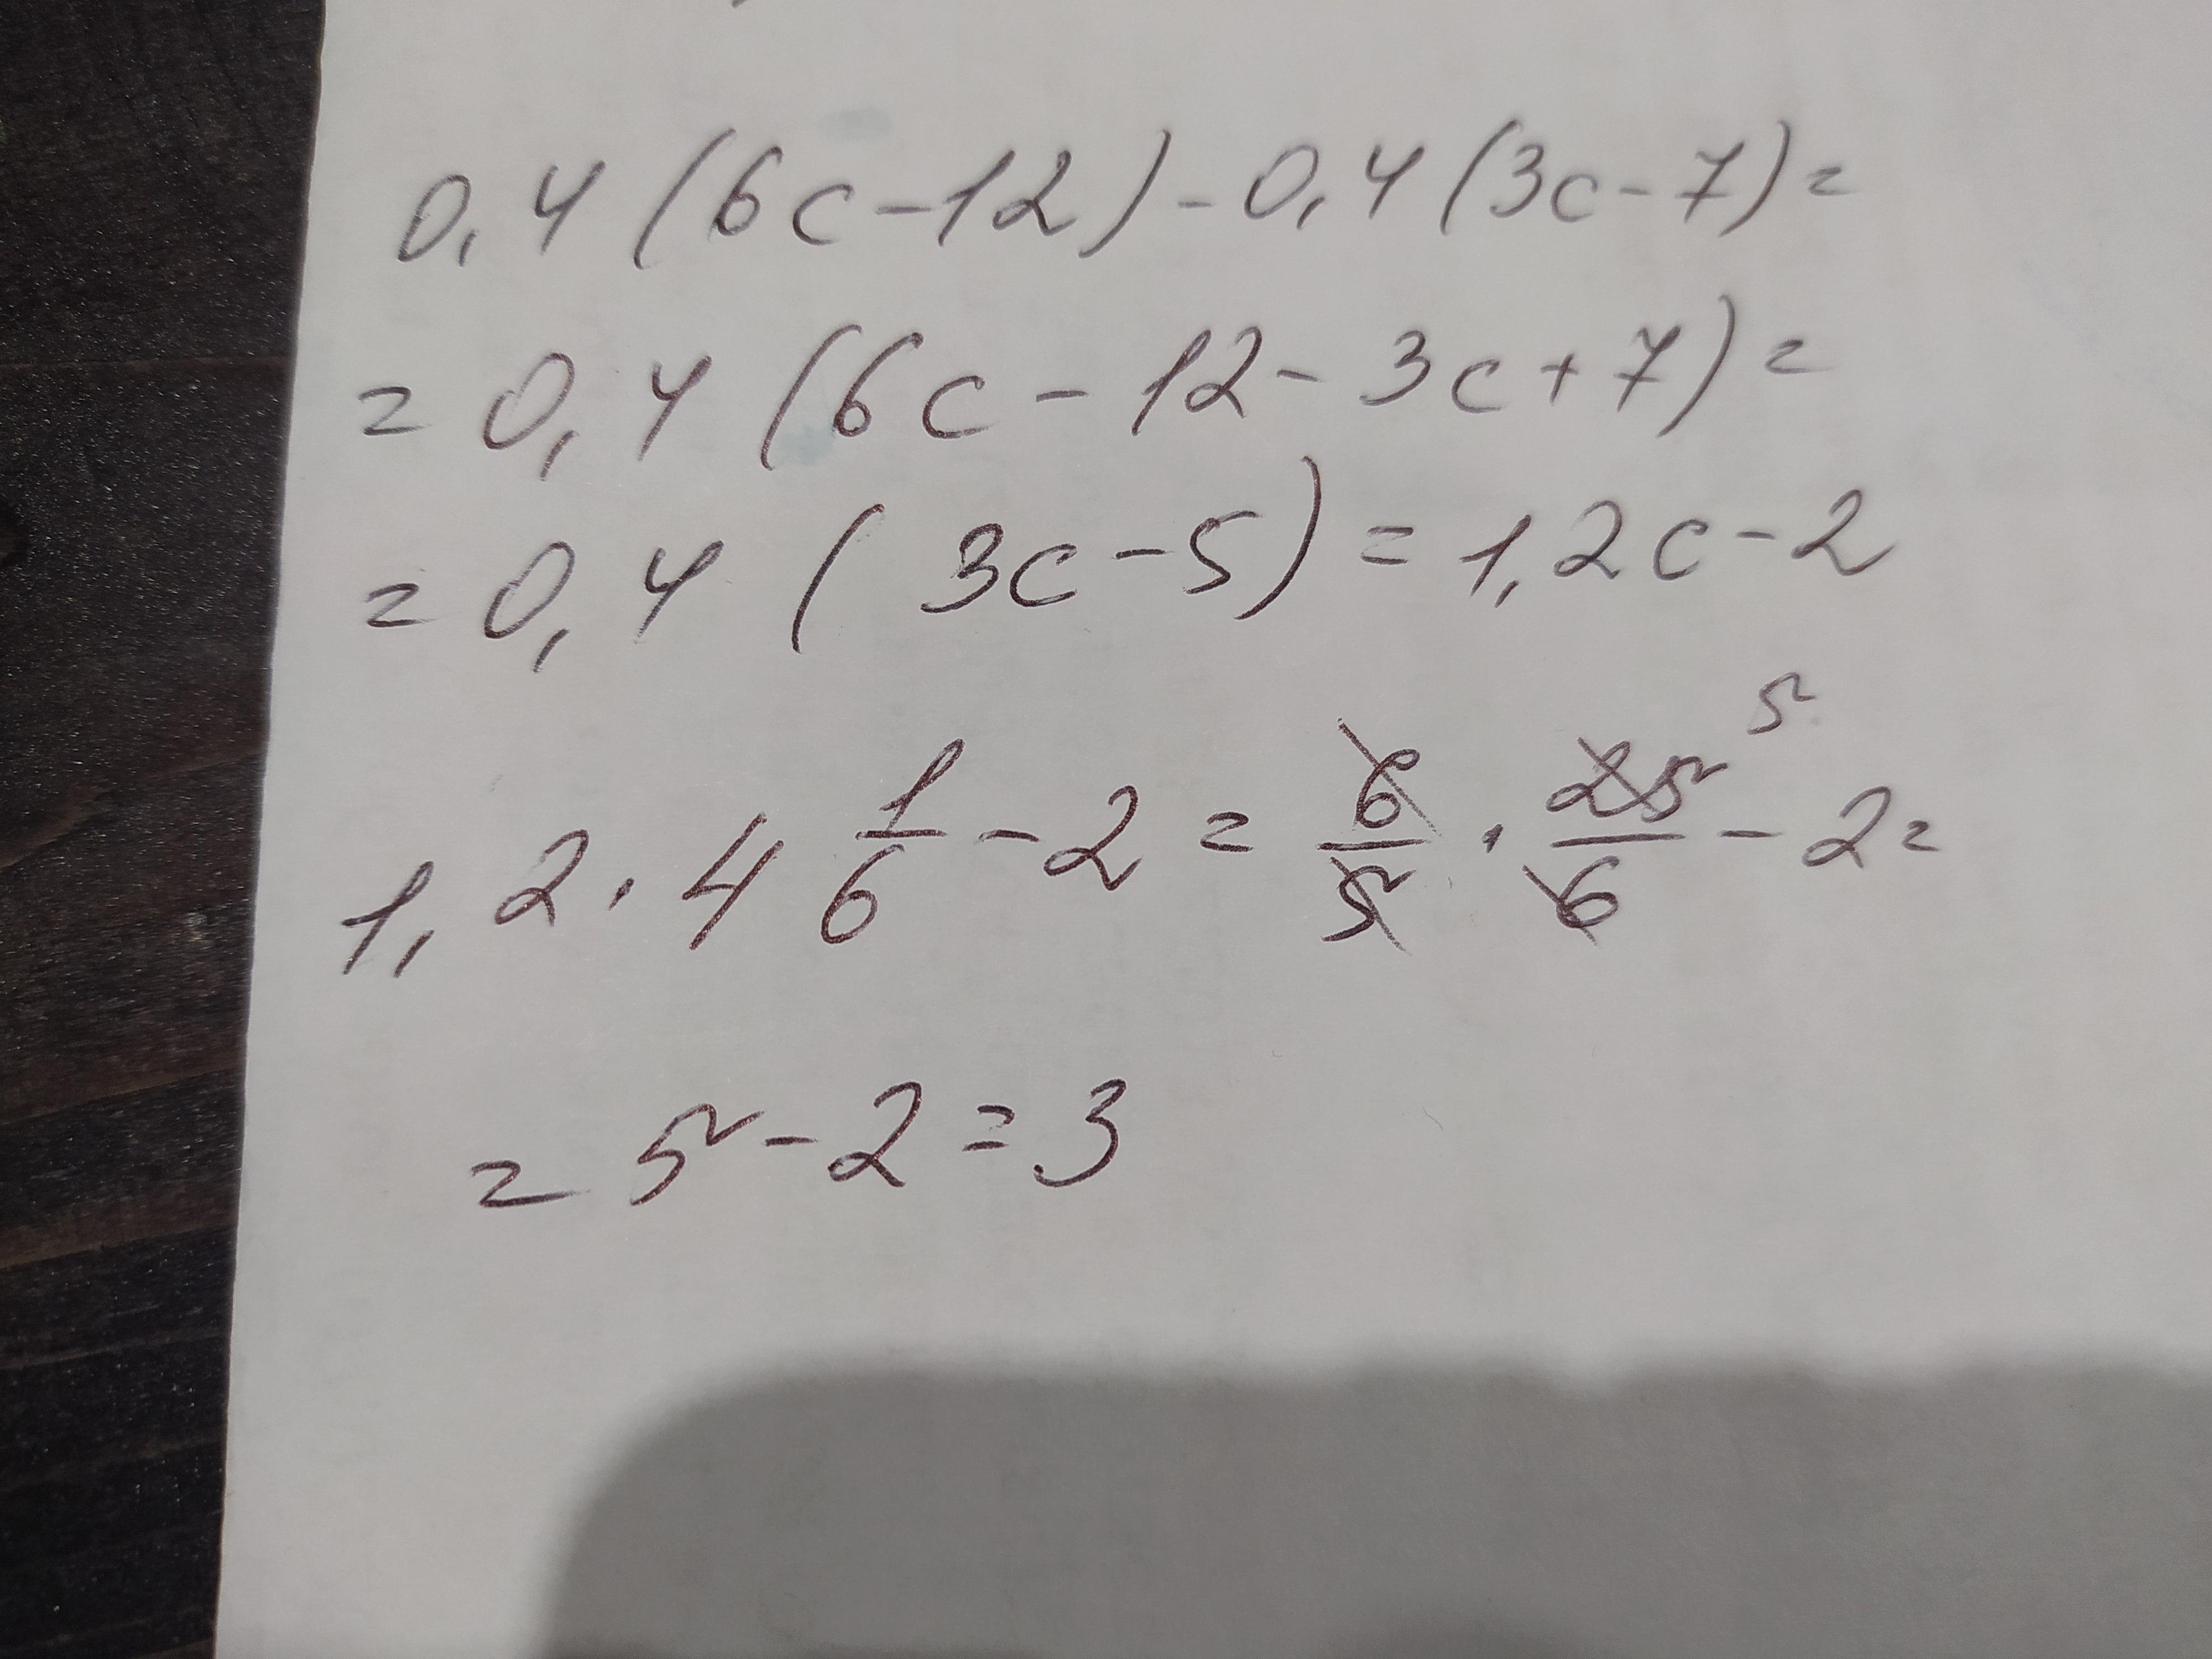 0,4 (6c-12) - 0,4 (3c-7) =
= 0,4 (6c - 12 - 3c + 7) =
= 0,4 (3c-5) = 1,2c-2
1,2 · 4 1/6 - 2 = 6/5 · 25/6 5 - 2 =
= 5-2 = 3